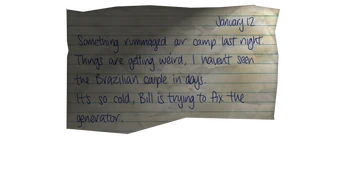 January 12
Something rummaged our camp last night.
Things are getting weird, I haven't seen
the Brazilian couple in days.
It's so cold, Bill is trying to fix the
generator.